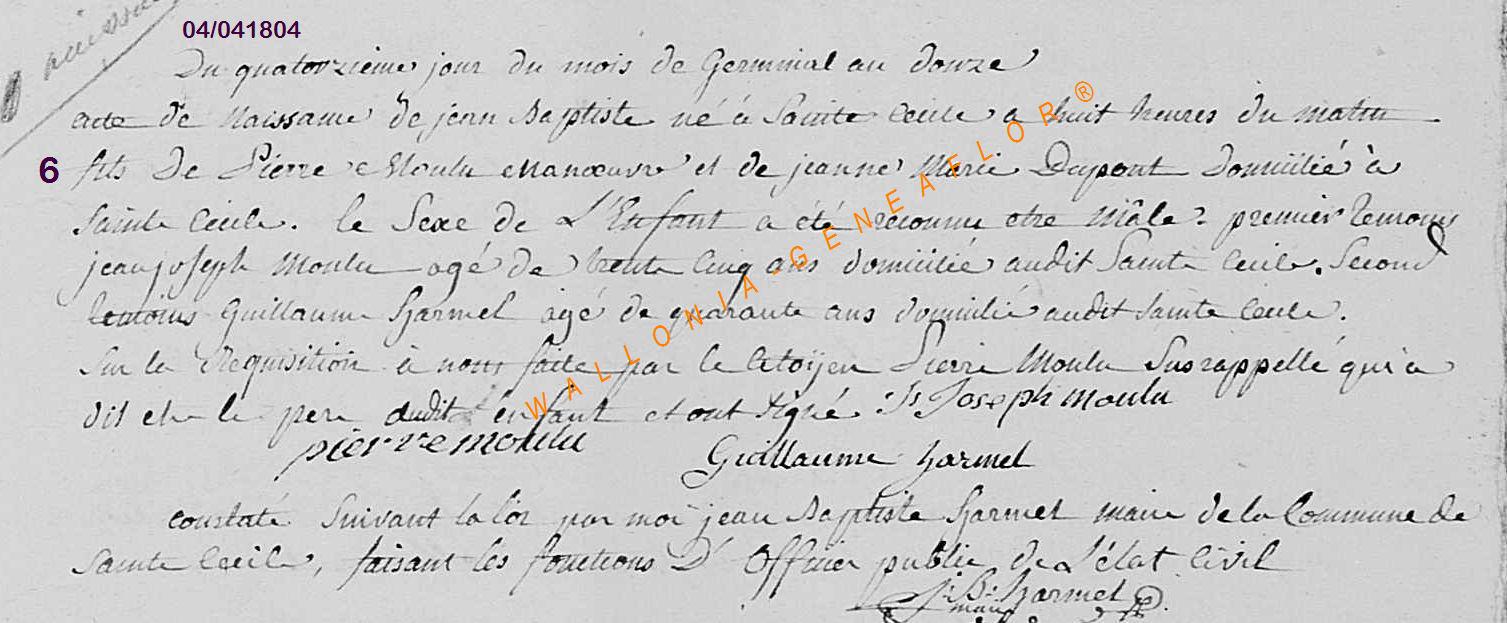 naissance
04/041804
Du quatorzieme jour du mois de Germinal an douze
acte de Naissance de jean Baptiste né à Sainte Cecile a huit heures du matin
6 fils de Pierre Moulu Manœuvre et de jeanne Marie Dupont Domicilié à
Sainte Cecile. le Sexe de L'Enfant a été reconnu etre Mâle. premier temoins
jean joseph Moulu agé de trente Cinq ans domicilié audit Sainte Cecile. Second
temoins Guillaume Harmel agé de quarante ans domicilié audit Sainte Cecile.
Sur la Requisition à nous faite par le Citoyen Pierre Moulu Susrappellé qui a
dit etre le pere dudit enfant et ont signé Js Joseph moulu
pierre moulu Guillaume harmel
constaté Suivant la loi par moi jean Baptiste Harmel maire de la Commune de
Sainte Cecile, faisant les fonctions D'Officier public de L'état Civil
J: B: Harmel
maire
WALLONIA-GENEAFLOR ®